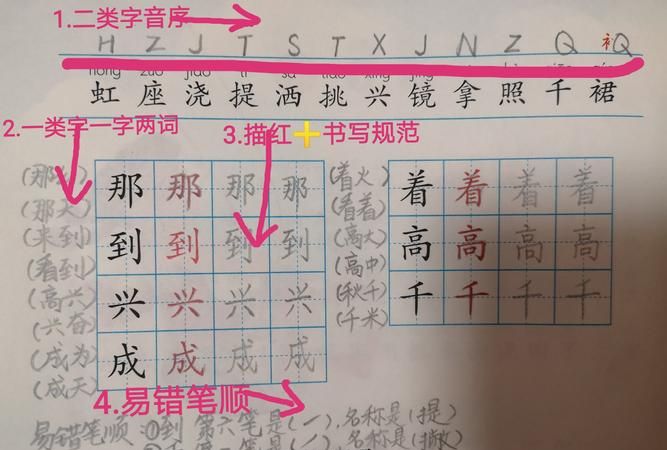 1.二类字音序
H Z J T S T X J N Z Q 衤Q
hóng zuò jiāo tí sǎ tiāo xīng jìng
虹 座 浇 提 洒 挑 兴 镜 拿 照 千 裙
2.一类字一字两词
3.描红➕书写规范
(那
(那天)
(来到)
(看到)
(高兴)
(兴奋)
(成为)
(成天)
那 那 那 那
到 到 到 到
兴 兴 兴 兴
成 成 成 成
(着火)
(看着)
(高大)
(高中)
(秋千)
(千米)
着 着 着 着
高 高 高 高
千 千 千 千
4.易错笔顺
易错笔顺:①到 第六笔是(㇀),名称是(提)
第 笔是(丿),名称是(撇)